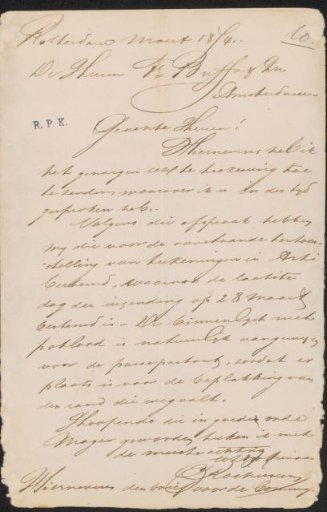 Rotterdam Maart 18
60
De Heeren Fr Buffa & Zn
Amsterdam
R.P.K.
Geeerte Heeren!
Hiernevens heb ik
het genoegen UEd de teekening toe
te zenden, waarover ik u in der tyd
gesproken heb.
Volgens die afspraak hebben
wy die voor de aanstaande tentoon
stelling van teekeningen in Arti
bestemd, waarvan de laatste
dag der inzending op 28 Maart
bestemd is - De binnen lyst met
potlood is natuurlyk aangewezen
voor de passepartout, zoodat er
plaats is voor de beplakking van
den rand die wegvalt.
Hoopende die in goede orde
Moge geworden teeken ik met
de meeste achting
UEd
Hiernevens den brief voor de